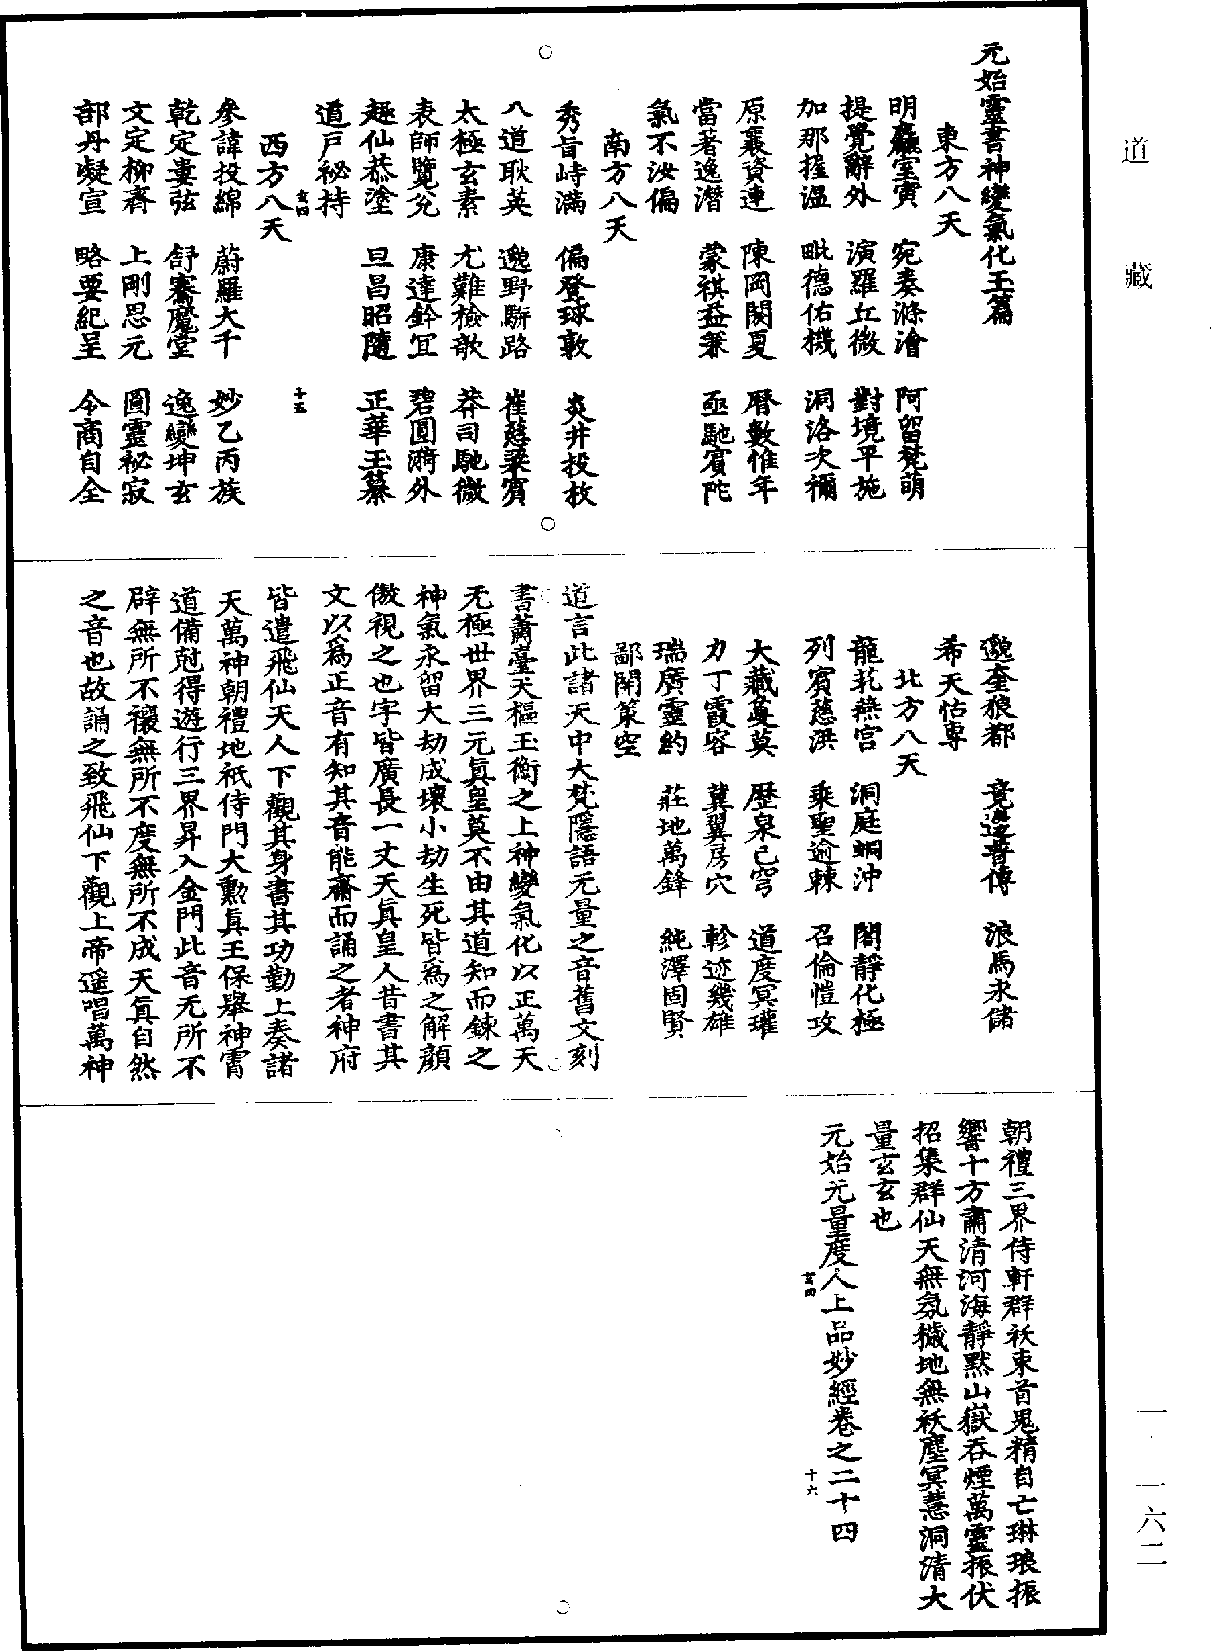 元始靈書神變氣化王篇
東方八天
明䕻室賓　宛奏滌澮　阿留梵萌
提覺辭外　演羅丘微　對境平施
加那握溫　毗德佑機　洞洛次禰
原襄資連　陳岡闋夏　曆數惟年
當著逸潛　蒙祺益兼　亟馳賓陀
氣不汝偏
南方八天
秀旨峙滿　偏登球敦　炎井投枚
八道耿英　邈野騈路　崔慈梁賓
太極玄素　尤難檢歆　莽司馳微
表師覽兊　康達鈐宜　碧圓濟外
趍仙恭塗　旦昌昭隨　正華玉纂
道戶祕持
西方八天
參諱投綿　蔚羅大千　妙乙丙族
乾定婁弦　舒騫魔堂　逸變坤玄
文定柳齊　上剛思元　圓靈秘寂
部丹凝宣　略要紀呈　令商自全
邈奎狼都　竟邊普傳　浪馬永儲
希天怙專
北方八天
龍荒燕宮　洞庭蜩沖　閣靜化極
列賓慈洪　乘聖逾棘　召倫愷攻
大藏蔓莫　歷泉已穹　道度冥瓘
力丁霞容　冀翼房穴　軫迹幾雄
瑞廣靈約　莊地萬鋒　純澤固賢
鄙開策空
道言此諸天中大梵隱語无量之音舊文刻
書蕭臺天樞玉衡之上神變氣化以正萬天
无極世界三元眞皇莫不由其道知而鍊之
神氣永留大劫成壞小劫生死皆爲之解顔
傲視之也字皆廣長一丈天眞皇人昔書其
文以爲正音有知其音能齋而誦之者神府
皆遣飛仙天人下觀其身書其功勤上奏諸
天萬神朝禮地祇侍門大勳眞王保舉神霄
道備尅得遊行三界昇入金門此音无所不
辟無所不禳無所不度無所不成天眞自然
之音也故誦之致飛仙下觀上帝遥唱萬神
朝禮三界侍軒群袄束首鬼精自亡琳琅振
響十方肅清河海靜默山嶽吞煙萬靈振伏
招集群仙天無氛穢地無袄塵冥慧洞清大
量玄玄也
元始无量度人上品妙經卷之二十四
十五
十六
道藏
一　一六二